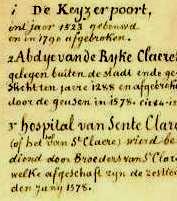 1 De Keyzerpoort,
int jaer 1523 gebouwd
en in 1790 afgebroken.
2 Abdye van de Ryke Claeren
gelegen buiten de stadt ende ge-
sticht ten jaere 1288 en afgebroke
door de geusen in 1578.
3 hospital van Sente Clara
(of het van St Claere) wierd be
diend door Broeders van St Clar
welke afgeschaft zyn de
den Juny 1578.